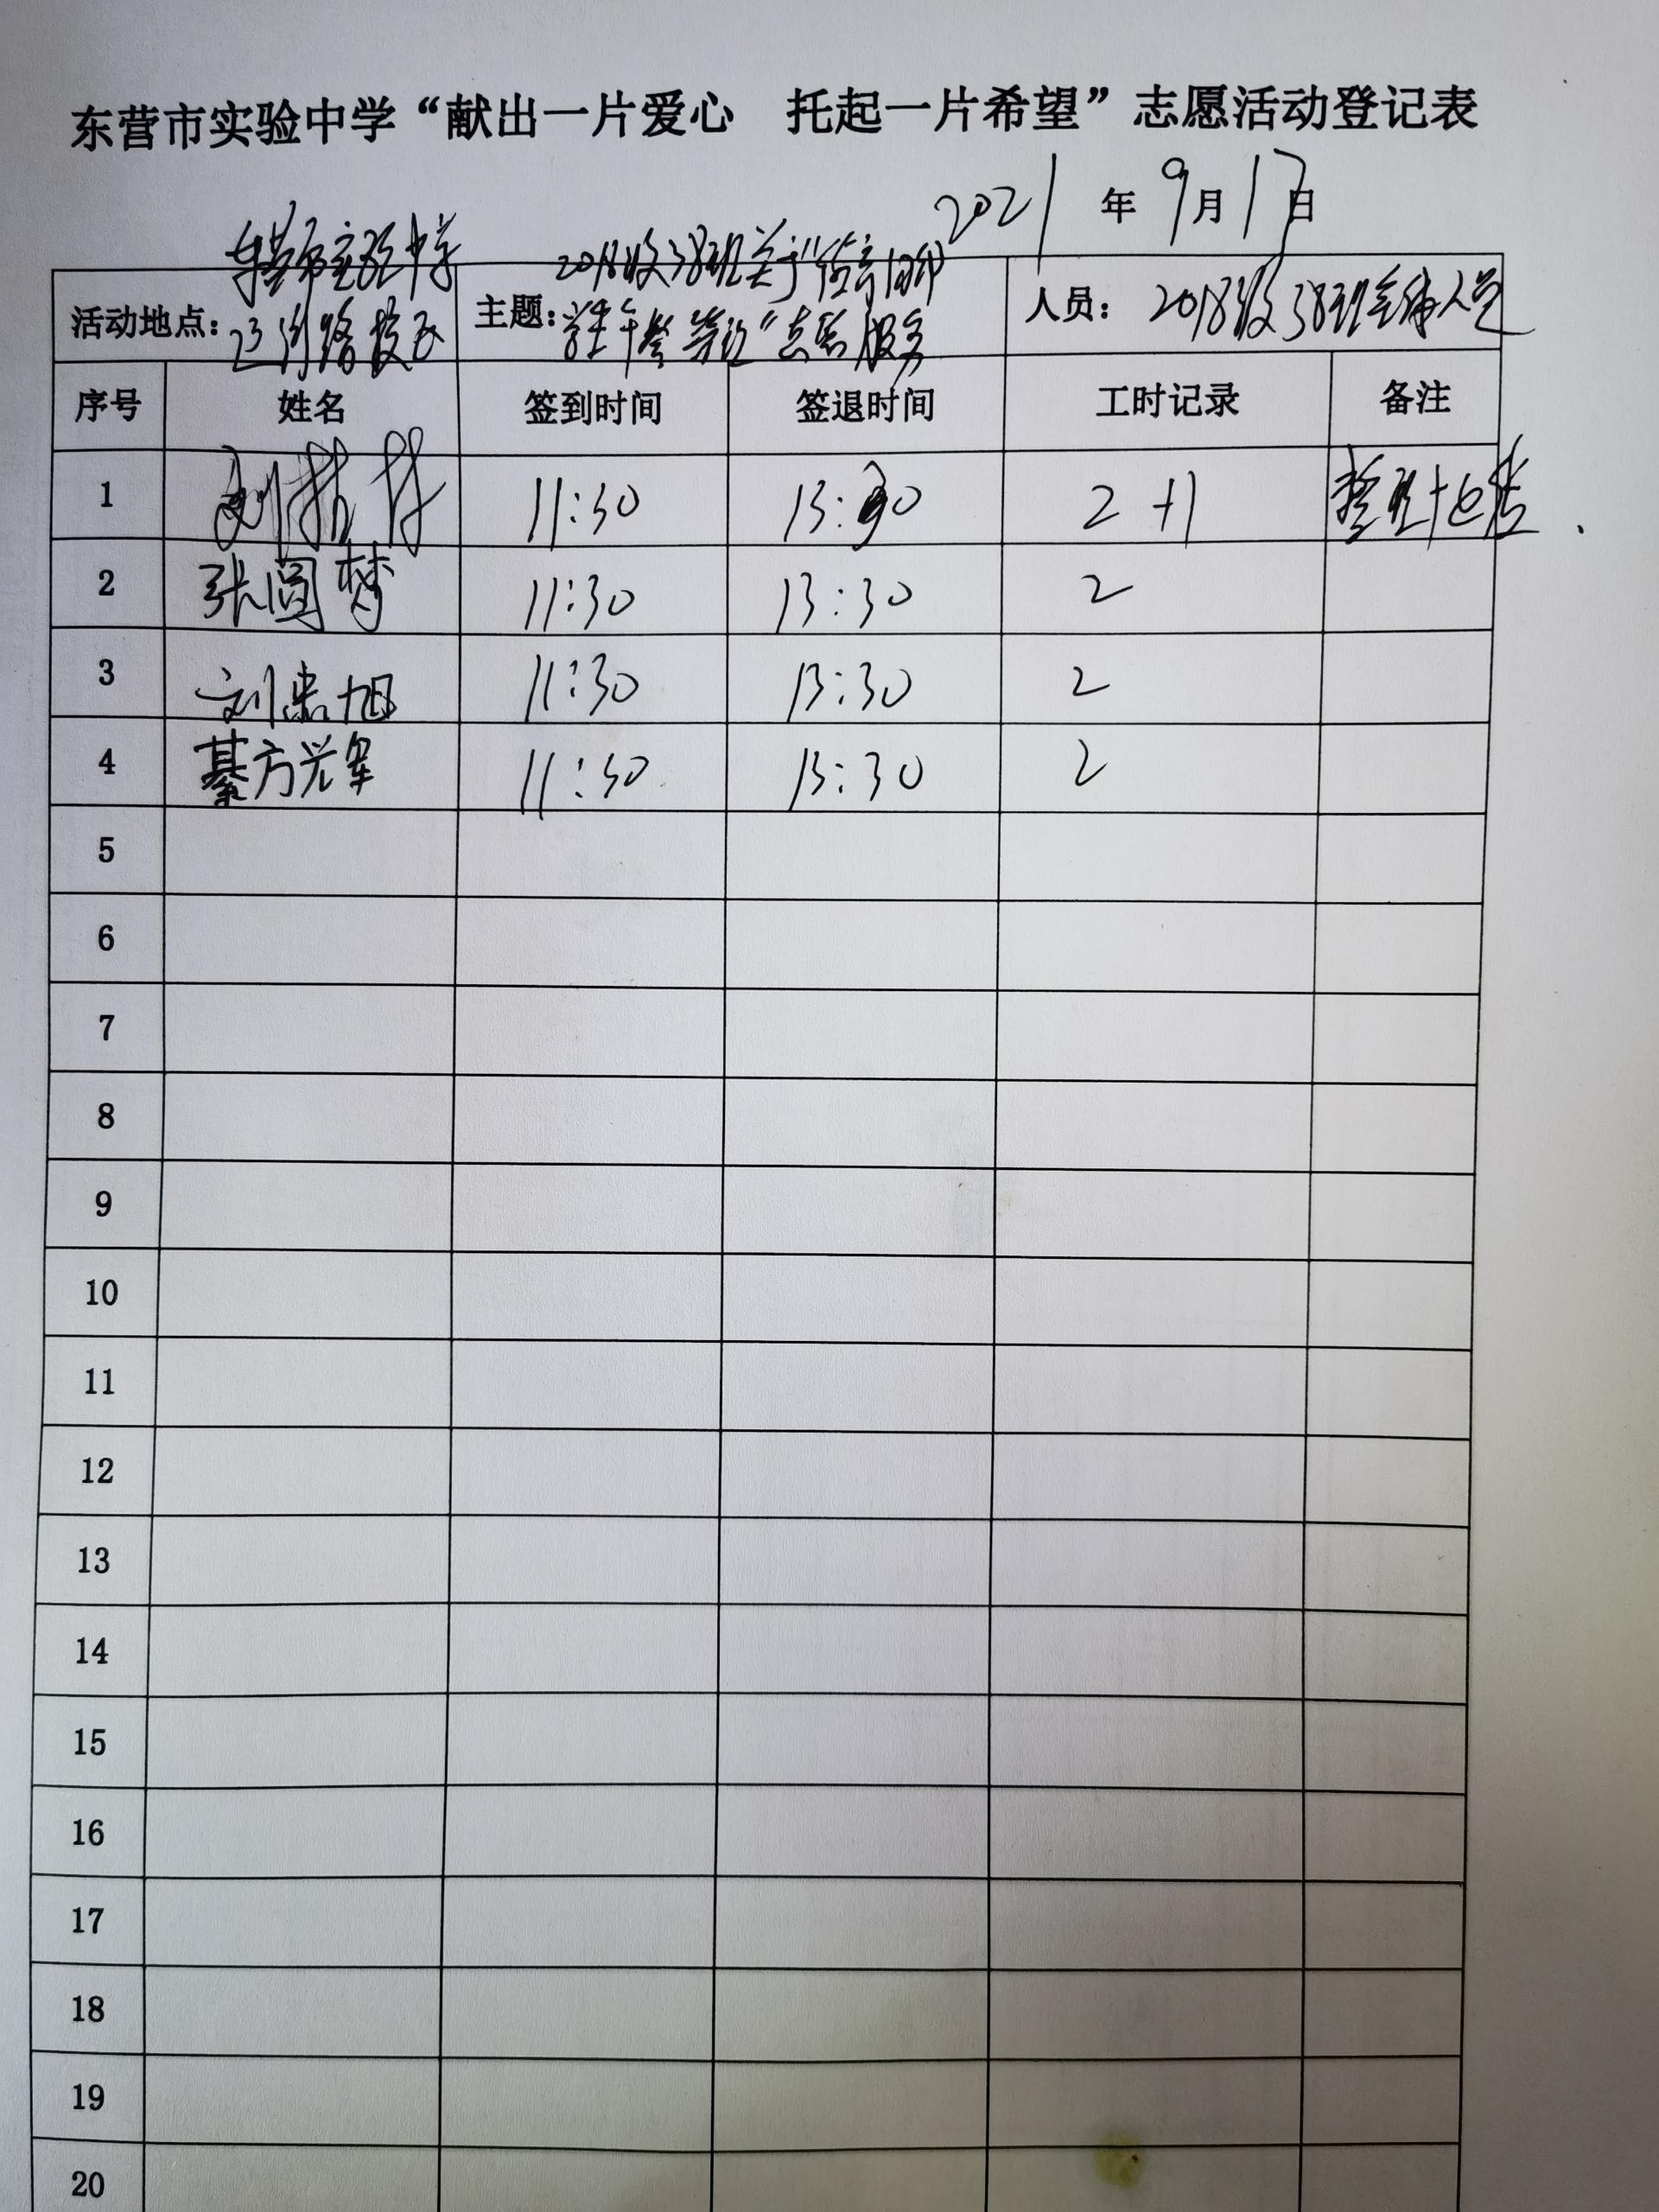 东营市实验中学“献出一片爱心 托起一片希望”志愿活动登记表
2021 年 9月 17日
东营市实验中学
2018级38班关于“
活动地点： 路校区
主题： 学生午餐 ”志愿服务
人员： 2018级38班全体人员
序号 姓名 签到时间 签退时间 工时记录 备注
1 刘 11:30 13:30 2 +1
2 张圆梦 11:30 13:30 2
3 刘 旭 11:30 13:30 2
4 綦方 11:30 13:30 2
5
6
7
8
9
10
11
12
13
14
15
16
17
18
19
20